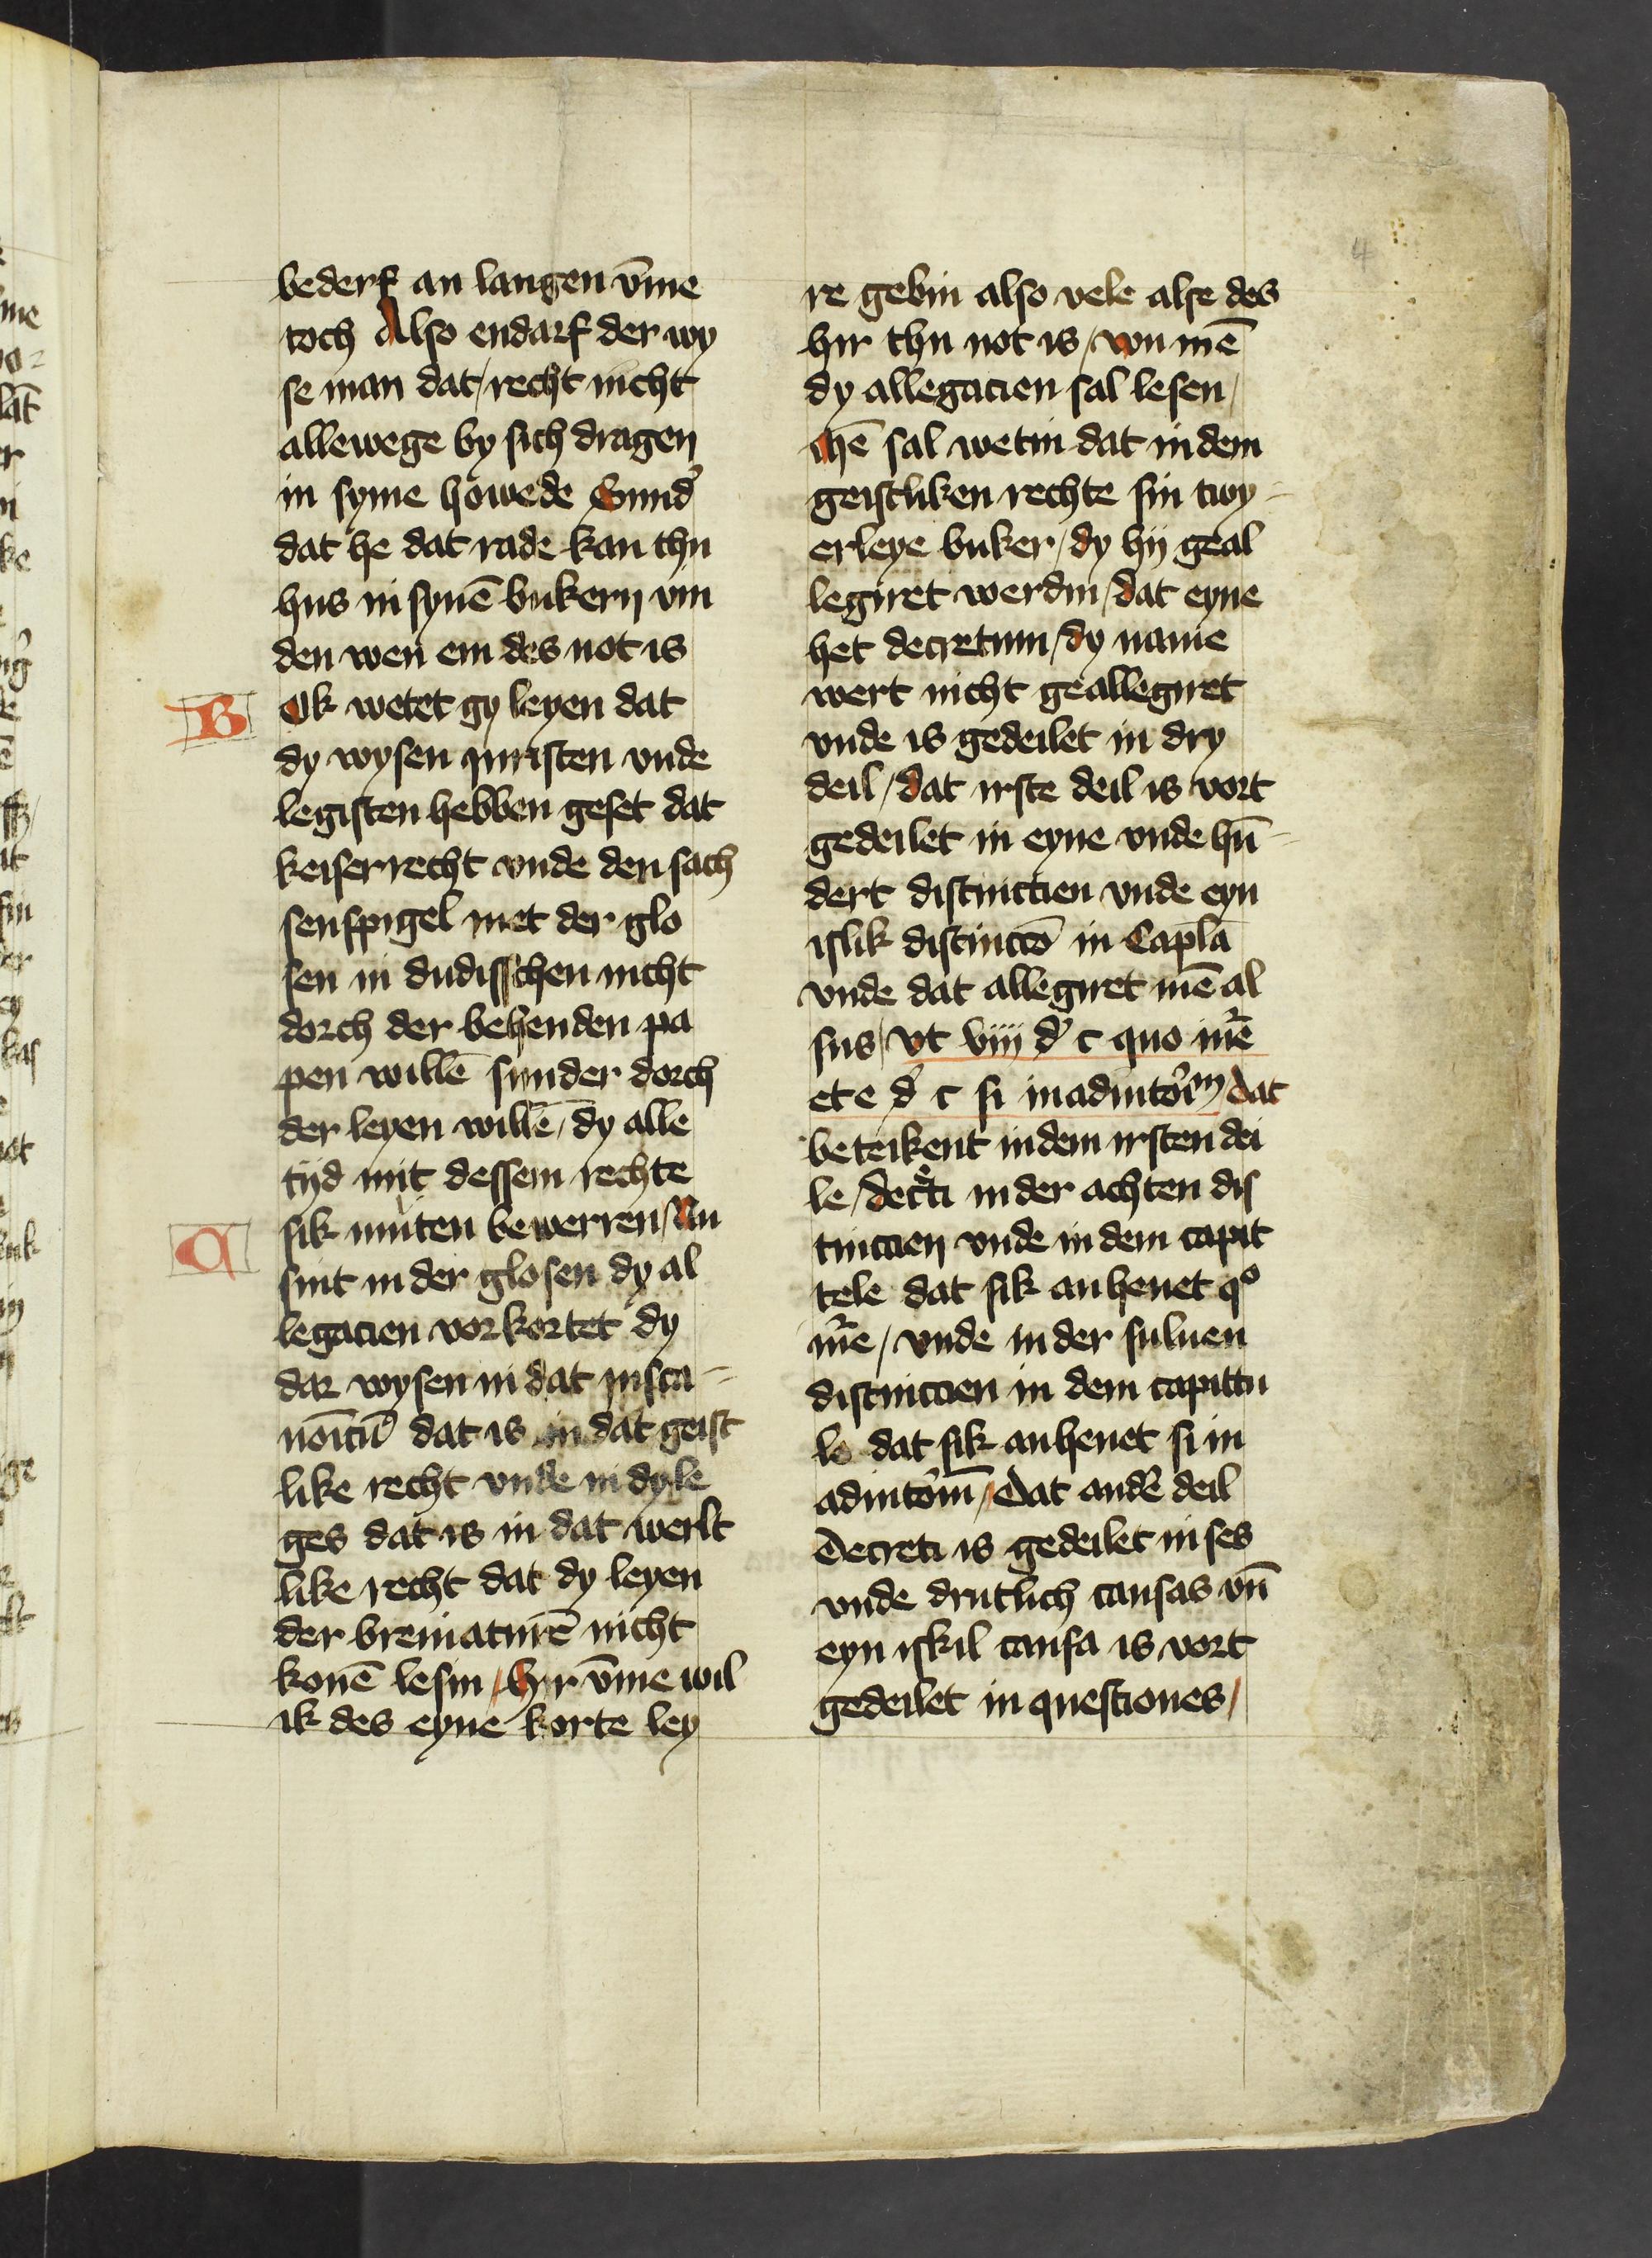 4
bederf an langen v̄me
toch Also endarf der wy
se man dat / recht nicht
allewege by sich dragen
in syme howede Sund'
dat he dat rade kan thu
hus in synē bukern vin
den wen em des not is
B
Ok wetet gy leyen dat
dy wysen juristen vnde
legisten hebben geset dat
keiserrecht vnde den sach
senspigel met der glo
sen in dudisschen nicht
dorch der behenden pa
pen willē sunder dorch
der leyen willē / dy alle
tijd mit dessem rechte
sik muten bewerren / Nu
sint in der glosen dy al
legacien vorkortet dy
dar wysen in dat jusca-
noicū dat is in dat geist
like recht vnde in dy le
ges dat is in dat werlt
like recht dat dy leyen
der breuiaturē nicht
konē lesin / hir v̄me wil
ik des eyne korte ley
re gebin also vele alse des
hir thu not is / wu mē
dy allegacien sal lesen /
Mē sal wetin dat in dem
geistliken rechte sin twy-
erleye buker / dy hij geal
legiret werdin / dat eyne
het decretum / dy name
wert nicht geallegiret
vnde is gedeilet in dry
deil / dat irste deil is vort
gedeilet in eyne vnde hū-
dert distinctien vnde eyn
islik distinctio in Capla
vnde dat allegiret mē al
sus / vt viij d' c quo iur̄e
et e d' c si in adiutoriūm Dat
beteikent in dem irsten dei
le / decr̄ti in der achten dis
tinccien vnde in dem capit
tele dat sik anheuet qo
iur̄e / vnde in der suluen
distinccien in dem capittu
lo dat sik anheuet si in
adiutoriūm / Dat ander deil
Decreti is gedeilet in ses
vnde drutlich causas vn̄
eyn iskil causa is vort
gedeilet in questiones /